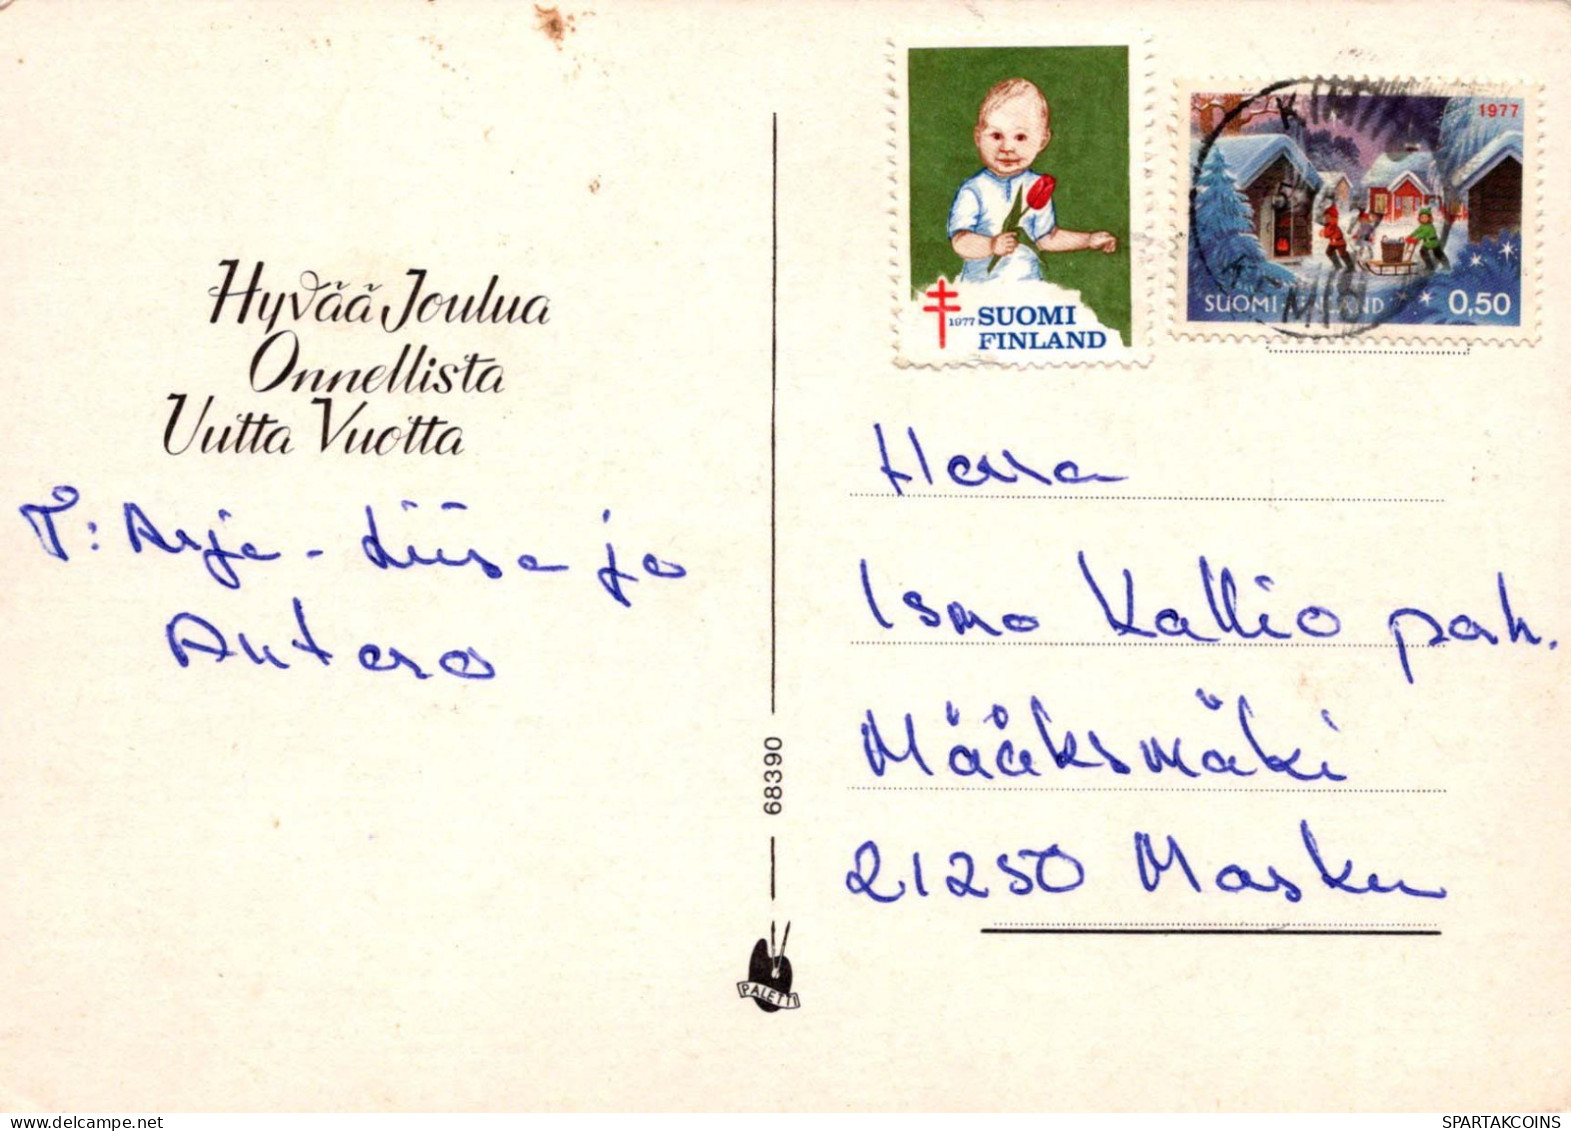 Hyvää Joulua
Onnellista
Uutta Vuotta
T: Arja-Liisa ja
Antero
68390
PALETTI
1977 SUOMI
FINLAND
1977
SUOMI-FINLAND 0,50
Herra
Ismo Kallio pah.
Määksmäki
21250 Masku
SPARTAKCOINS